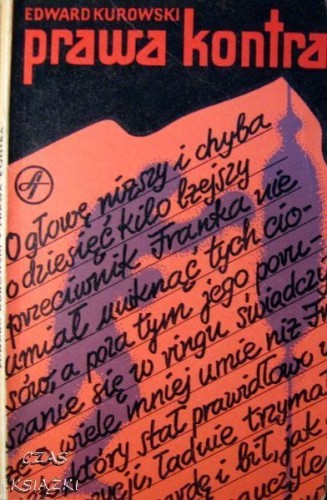 EDWARD KUROWSKI
prawa kontra
O głowę niższy i chyba
o dziesięć kilo lżejszy
przeciwnik Franka nie
umiał uniknąć tych cio-
sów, a poza tym jego poru-
szanie się w ringu świadczy
że wiele mniej umie niż
który stał prawidłowo
ładnie trzyma
i bił, jak
CZAS
KSIĄŻKI